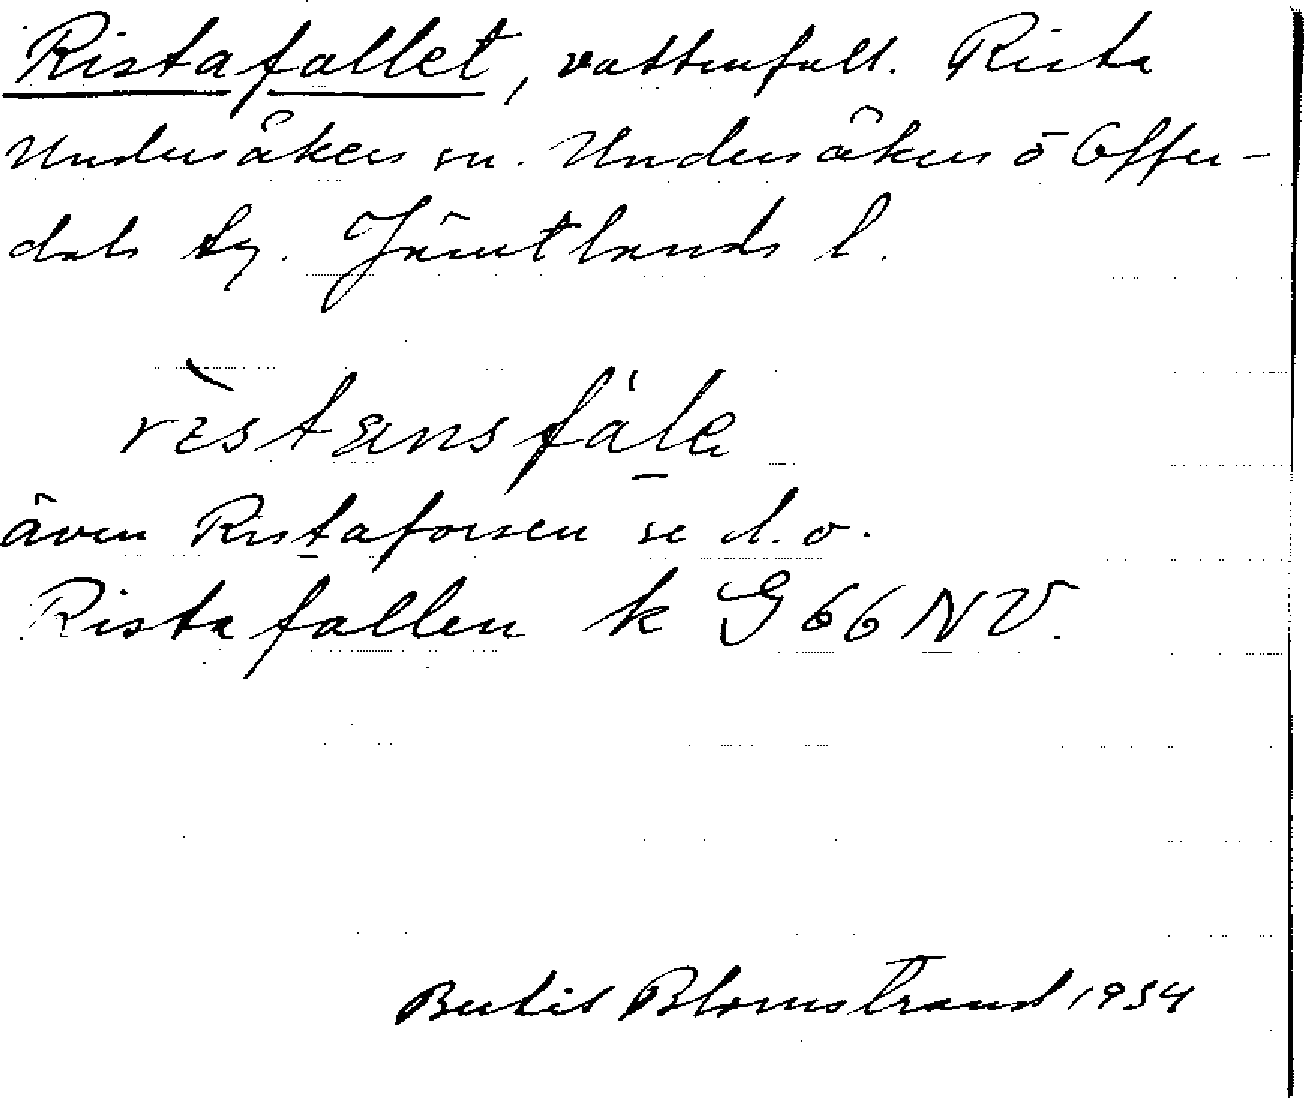 Ristafallet, vattenfall. Rista
Undersåkers sn. Undersåkers o Offer-
dals tg. Jämtlands l.
även Ristaforsen se d.o.
Ristafallen k G 66 NV.
Bertil Blomstrand 1934